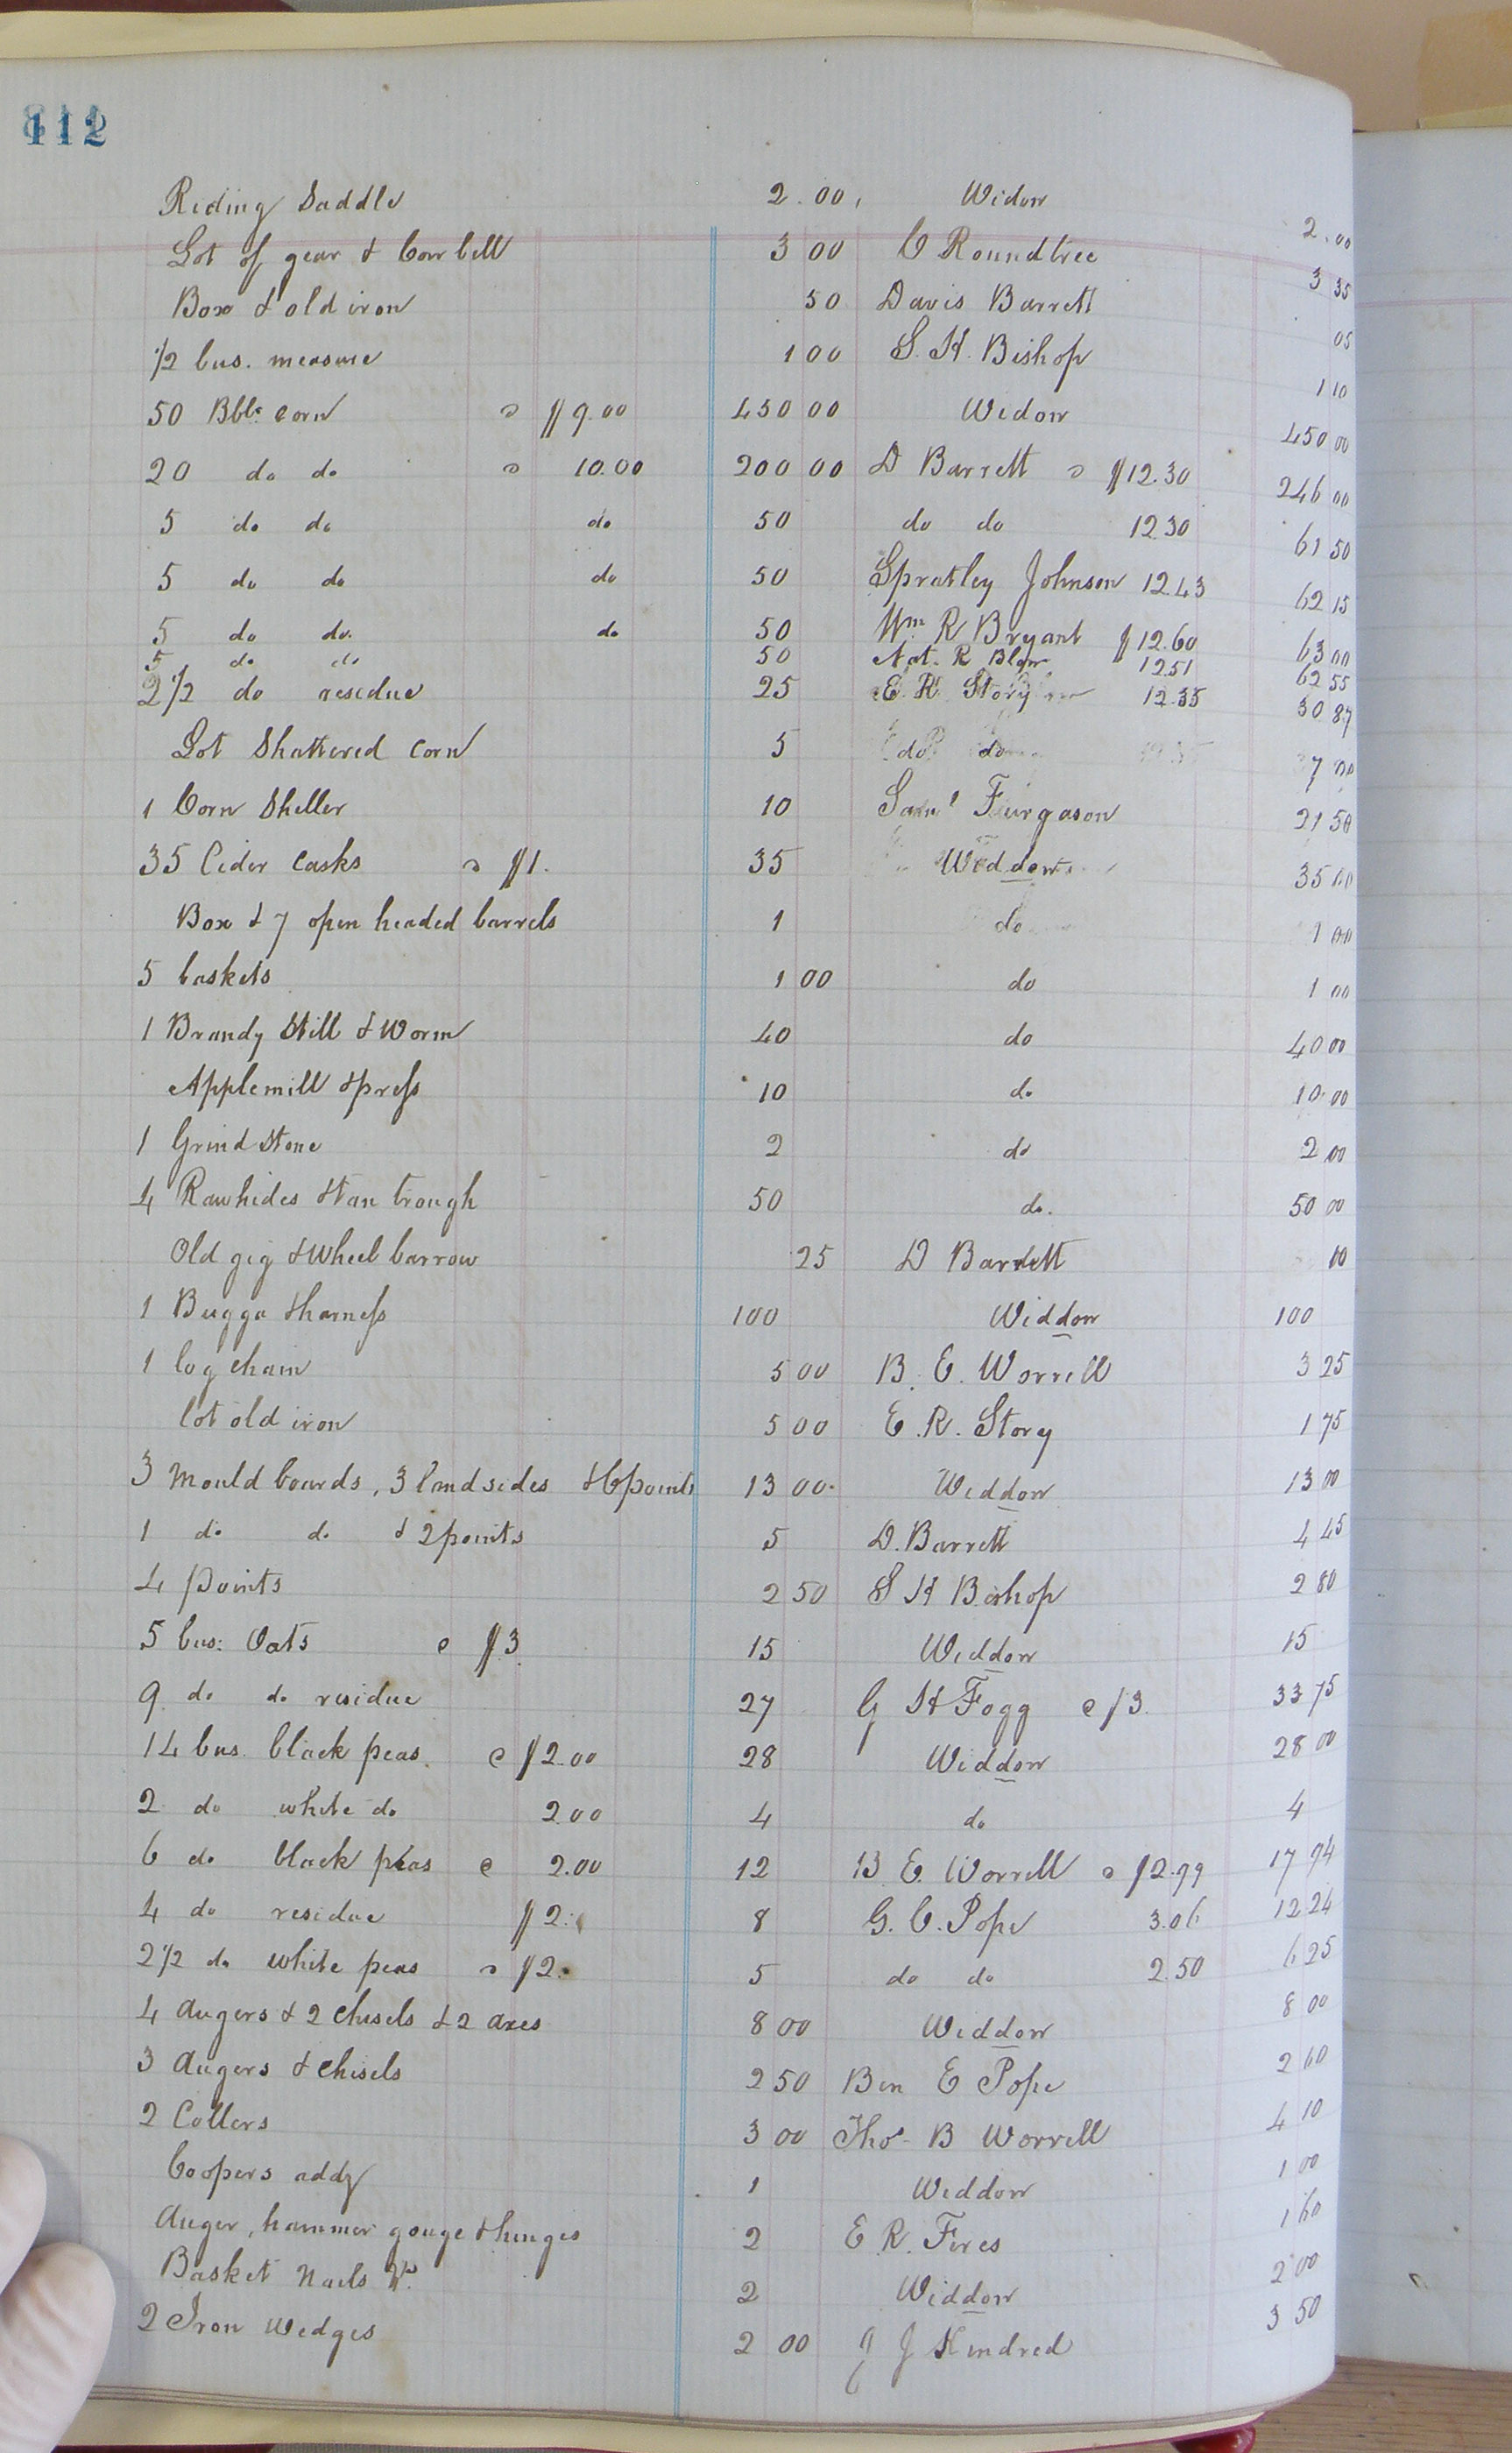 112
Riding Saddle 2.00 Widow 2.00
Lot of gear & Cow bell 3 00 C Roundtree 3 35
Box & old iron 50 Davis Barrett 05
1/2 bus. measure 1 00 S. H. Bishop 1 10
50 Bbls corn @ $9.00 450 00 Widow 450 00
20 do do @ 10.00 200 00 D Barrett @ $12.30 246 00
5 do do do 50 do do 12 30 61 50
5 do do do 50 Spratley Johnson 12.43 62 15
5 do do. do 50 Wm R Bryant $12.60 63 00
5 do do 50 Nat. R Blow 12.51 62 55
2 1/2 do residue 25 E. R. Story 12.35 30 87
Lot Shattered corn 5 do do 7 00
1 Corn Sheller 10 Saml Furgason 21 50
35 Cider Casks @ $1. 35 Widdow 35 00
Box & 7 open headed barrels 1 do 1 00
5 baskets 1 00 do 1 00
1 Brandy Still & Worm 40 do 40 00
Applemill & press 10 do 10.00
1 Grind Stone 2 do 2 00
4 Rawhides & tan trough 50 do. 50 00
Old gig & Wheel barrow 25 D Barrett 10
1 Bugga & harness 100 Widdow 100
1 log chain 5 00 B. E. Worrell 3 25
lot old iron 5 00 E. R. Story 1 75
3 Mould boards, 3 landsides & 6 points 13 00. Widdow 13 00
1 do do & 2 points 5 D. Barrett 4 45
4 points 2 50 S H Bishop 2 80
5 bus: Oats @ $3 15 Widdow 15
9 do do residue 27 G H Fogg @ $3. 33 75
14 bus. black peas. @ $2.00 28 Widdow 28 00
2 do white do 2.00 4 do 4
6 do black peas @ 2.00 12 B E. Worrell @ $2.99 17 94
4 do residue $2. 8 G. C. Pope 3.06 12 24
2 1/2 do white peas @ $2. 5 do do 2.50 6 25
4 Augers & 2 Chisels & 2 axes 8 00 Widdow 8 00
3 Augers & Chisels 2 50 Ben E Pope 2 60
2 Collers 3 00 Thos B Worrell 4 10
Coopers addz 1 Widdow 1 00
Auger, hammer gouge & hinges 2 E R. Fires 1 60
Basket Nails 2 Widdow 2 00
2 Iron Wedges 2 00 J J Kindred 3 50